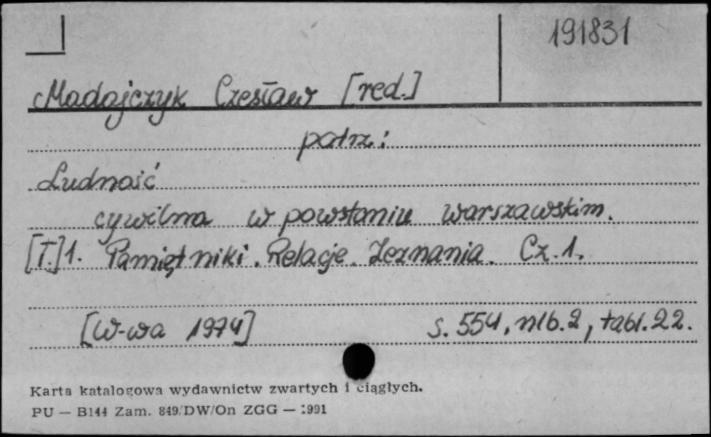 191831
Madajczyk Czesław [red.]
patrz:
Ludność
cywilna w powstaniu warszawskim.
[T.]1. Pamiętniki. Relacje. Zeznania. Cz.1.
[W-wa 1974] s. 554, nlb. 2, tabl. 22.
Karta katalogowa wydawnictw zwartych i ciągłych.
PU — B144 Zam. 849/DW/On ZGG — 1991